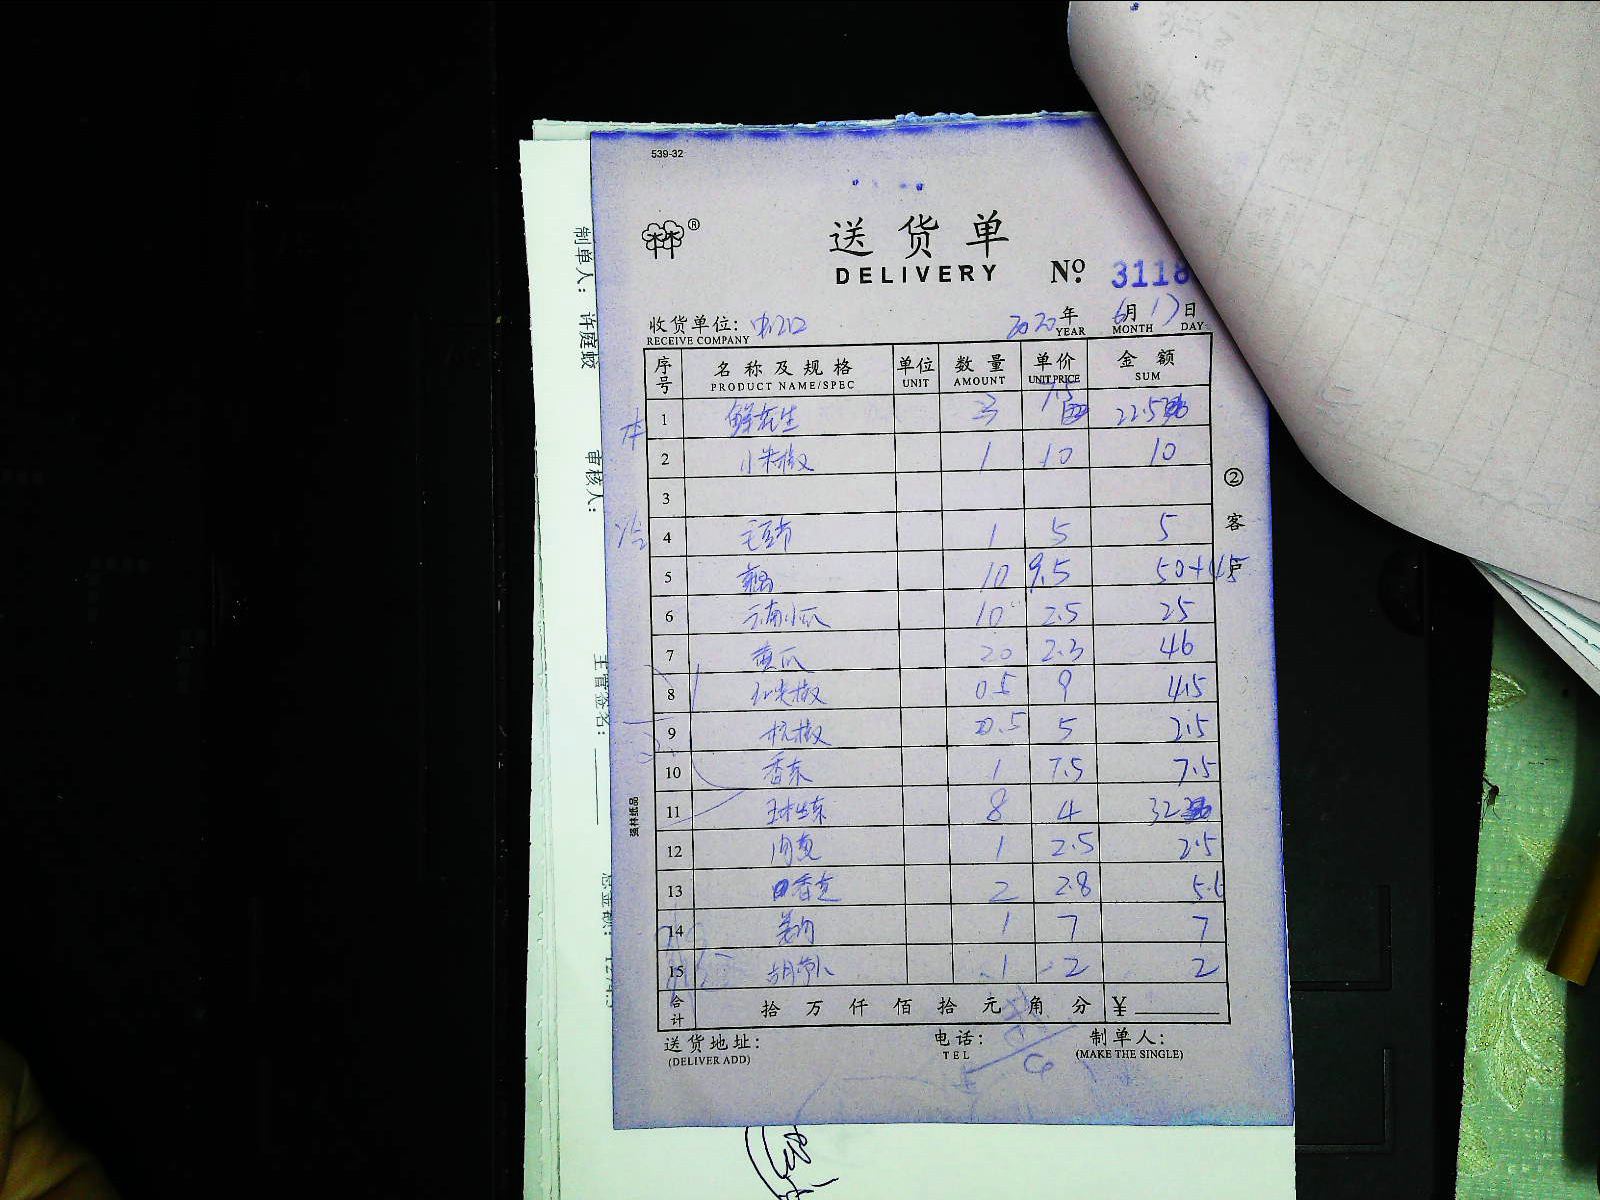 539-32
®
送货单
DELIVERY
No. 3118
收货单位:
RECEIVE COMPANY
2020年 6月 17日
YEAR MONTH DAY
序号 名称及规格 单位 数量 单价 金额
PRODUCT NAME/SPEC UNIT AMOUNT UNIT PRICE SUM
1 鲜花生 3 7.5 22.5
2 小米椒 1 10 10
3
4 毛豆节 1 5 5
5 10 9.5 50+45
6 云南小瓜 10 2.5 25
7 黄瓜 20 2.3 46
8 红尖椒 0.5 9 4.5
9 杭椒 0.5 5 2.5
10 香菜 1 7.5 7.5
11 球生菜 8 4 32
12 内黄 1 2.5 2.5
13 香芝 2 2.8 5.6
14 姜 1 7 7
15 胡萝卜 1 2 2
合计 拾 万 仟 佰 拾 元 角 分 ¥
送货地址:
(DELIVER ADD)
电话:
TEL
制单人:
(MAKE THE SINGLE)
② 客
强林纸品
制单人: 许庭蛟
审核人:
主管签名: